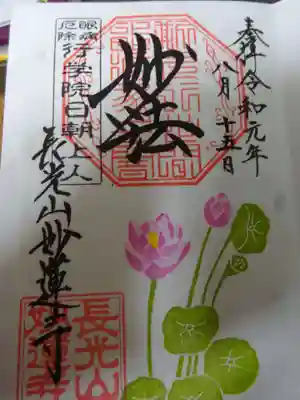 奉拝 令和元年
八月十五日
妙法
眼病
厄除 行学院日朝上人
長光山妙蓮寺
長光山
妙蓮寺